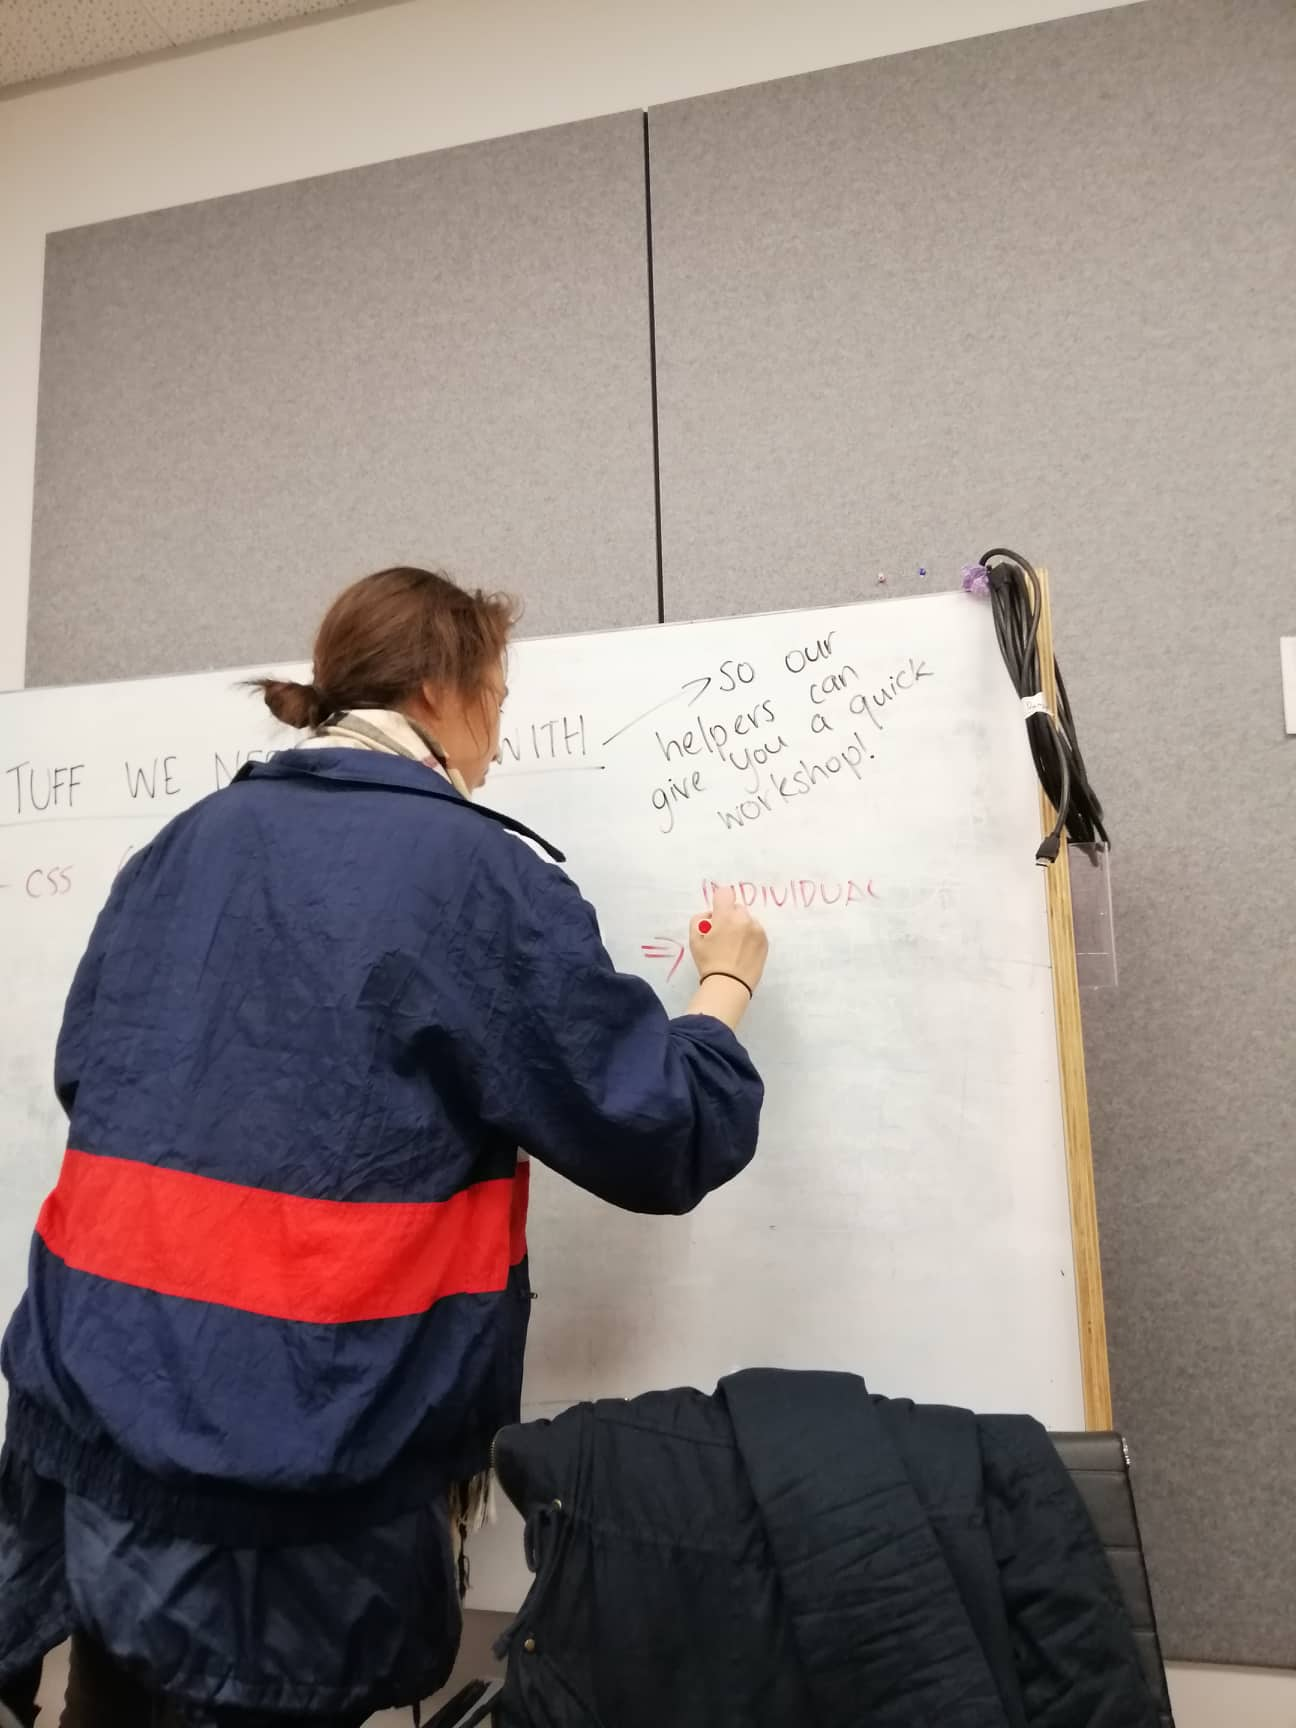 TUFF WE NEE WITH
so our
helpers can
give you a quick
workshop!
- CSS
INDIVIDUAL
⇒